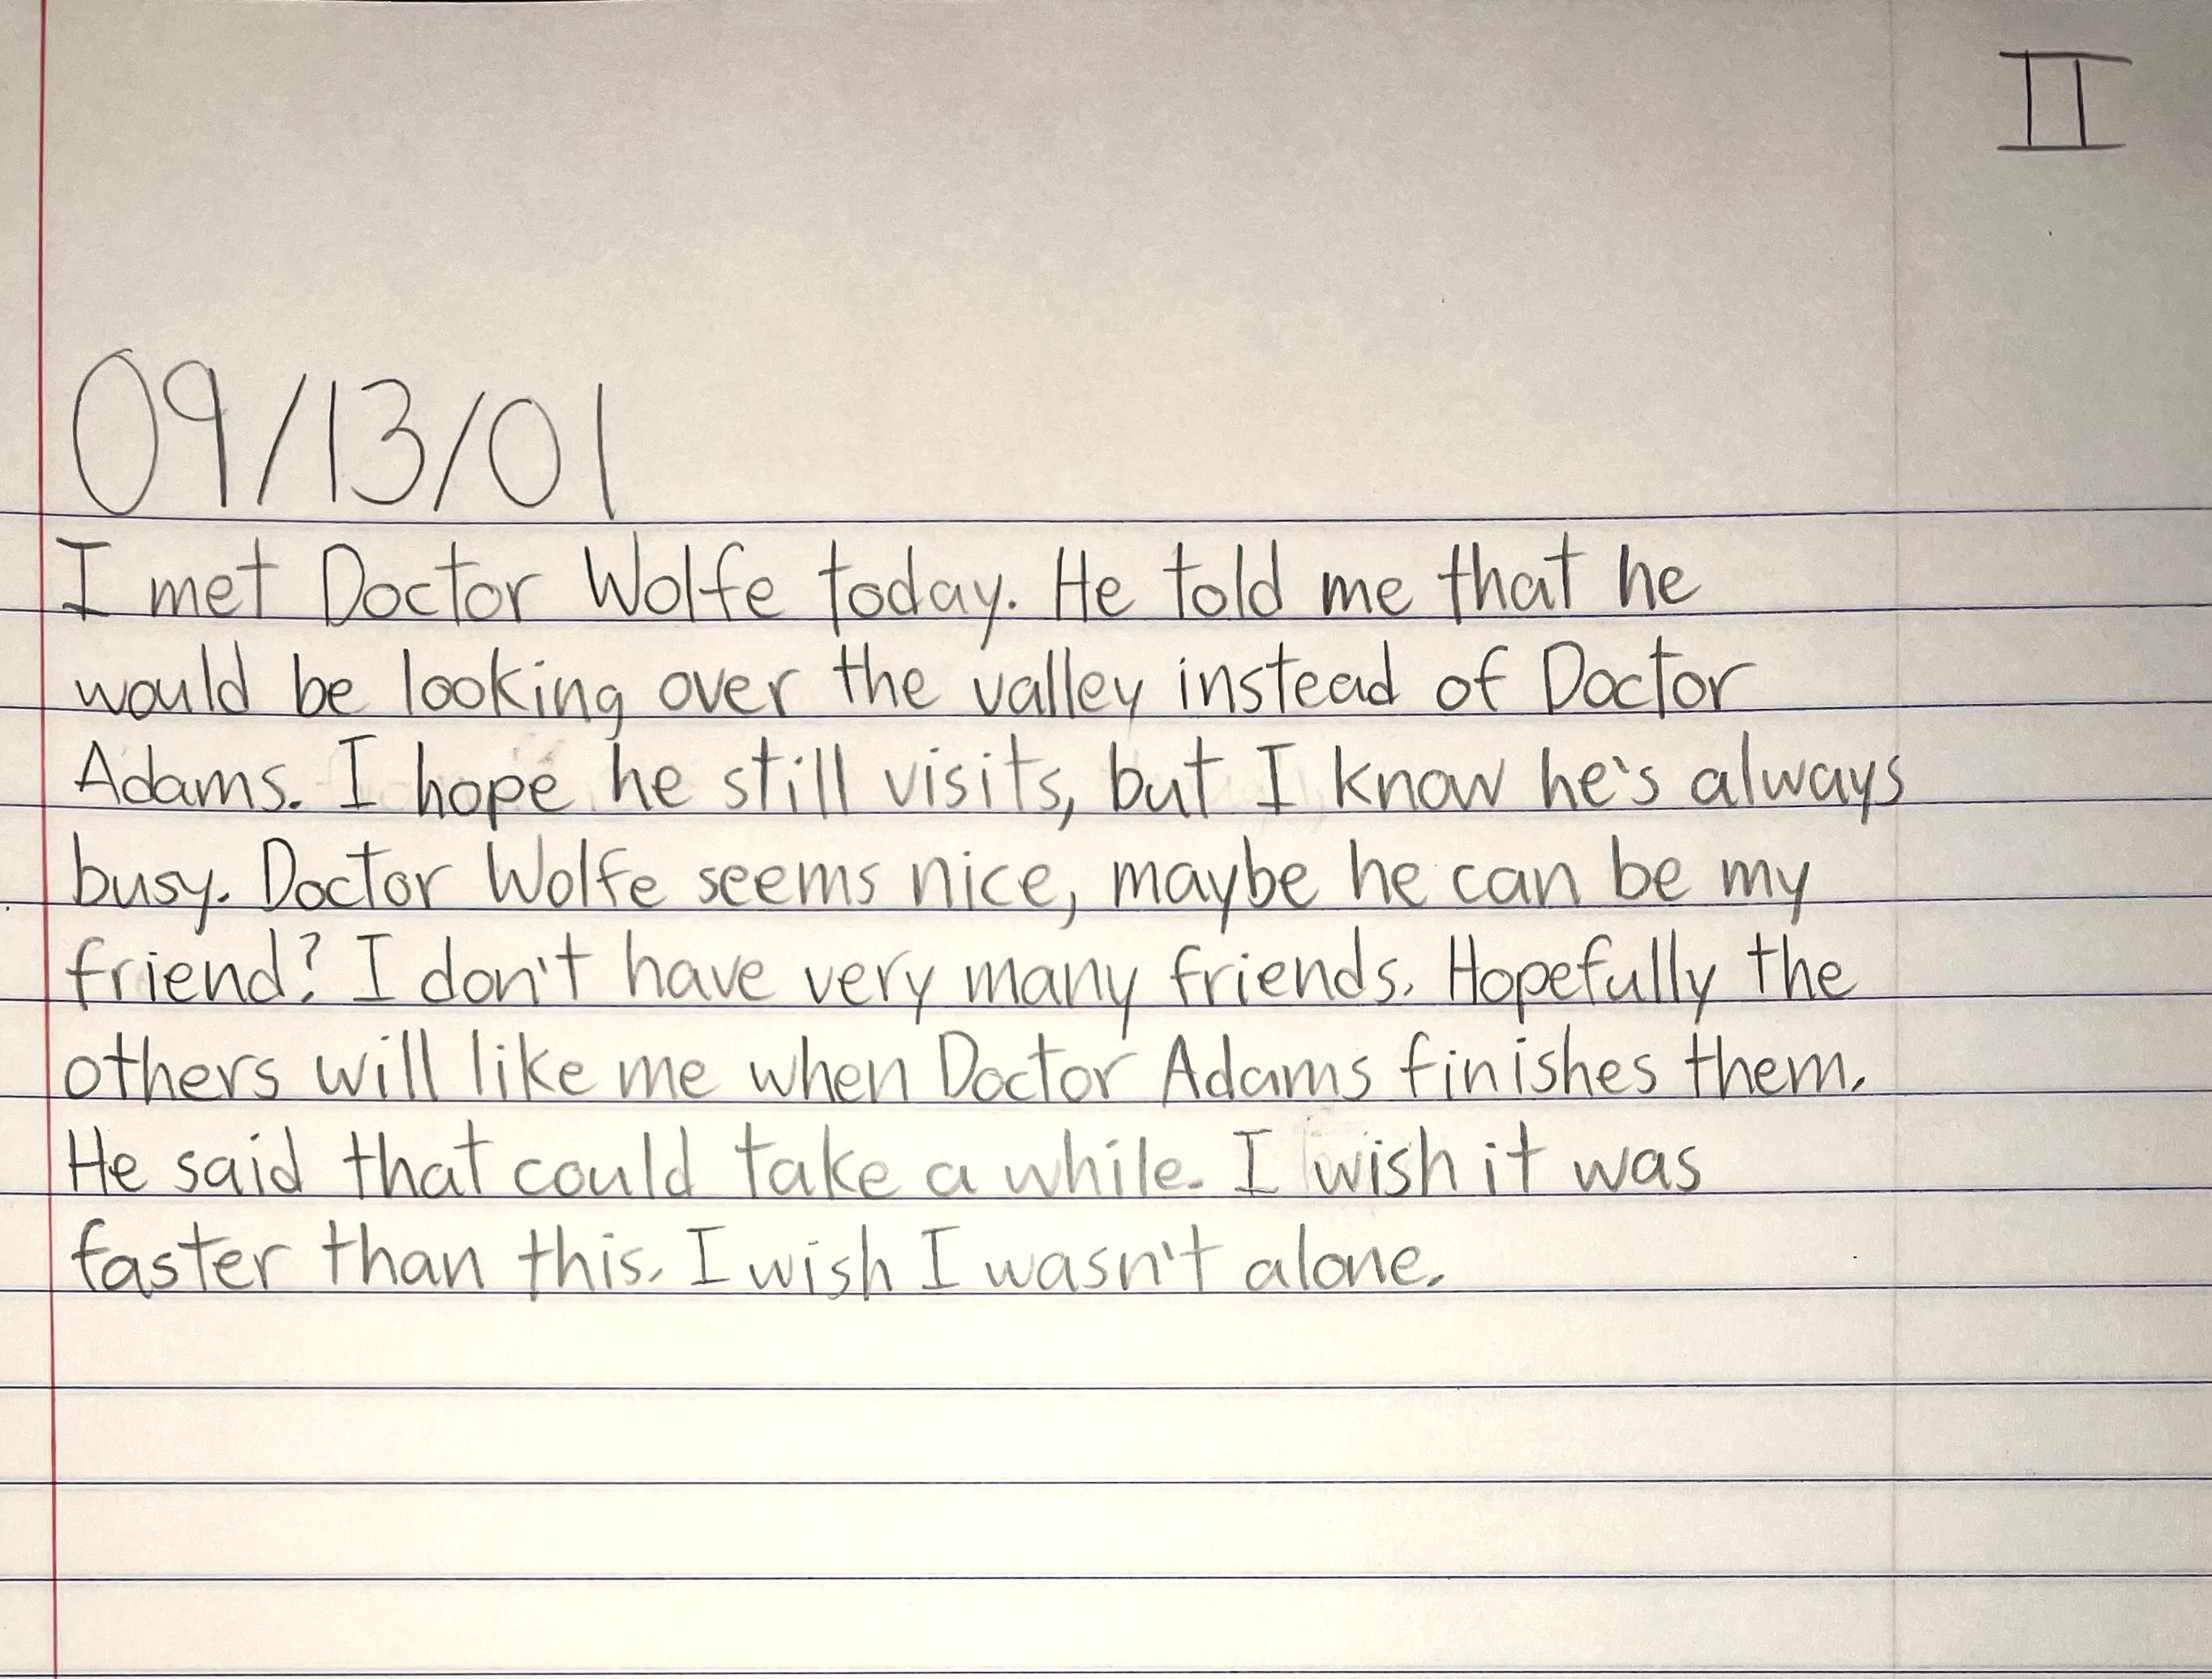 II
09/13/01
I met Doctor Wolfe today. He told me that he
would be looking over the valley instead of Doctor
Adams. I hope he still visits, but I know he's always
busy. Doctor Wolfe seems nice, maybe he can be my
friend? I don't have very many friends. Hopefully the
others will like me when Doctor Adams finishes them.
He said that could take a while. I wish it was
faster than this. I wish I wasn't alone.